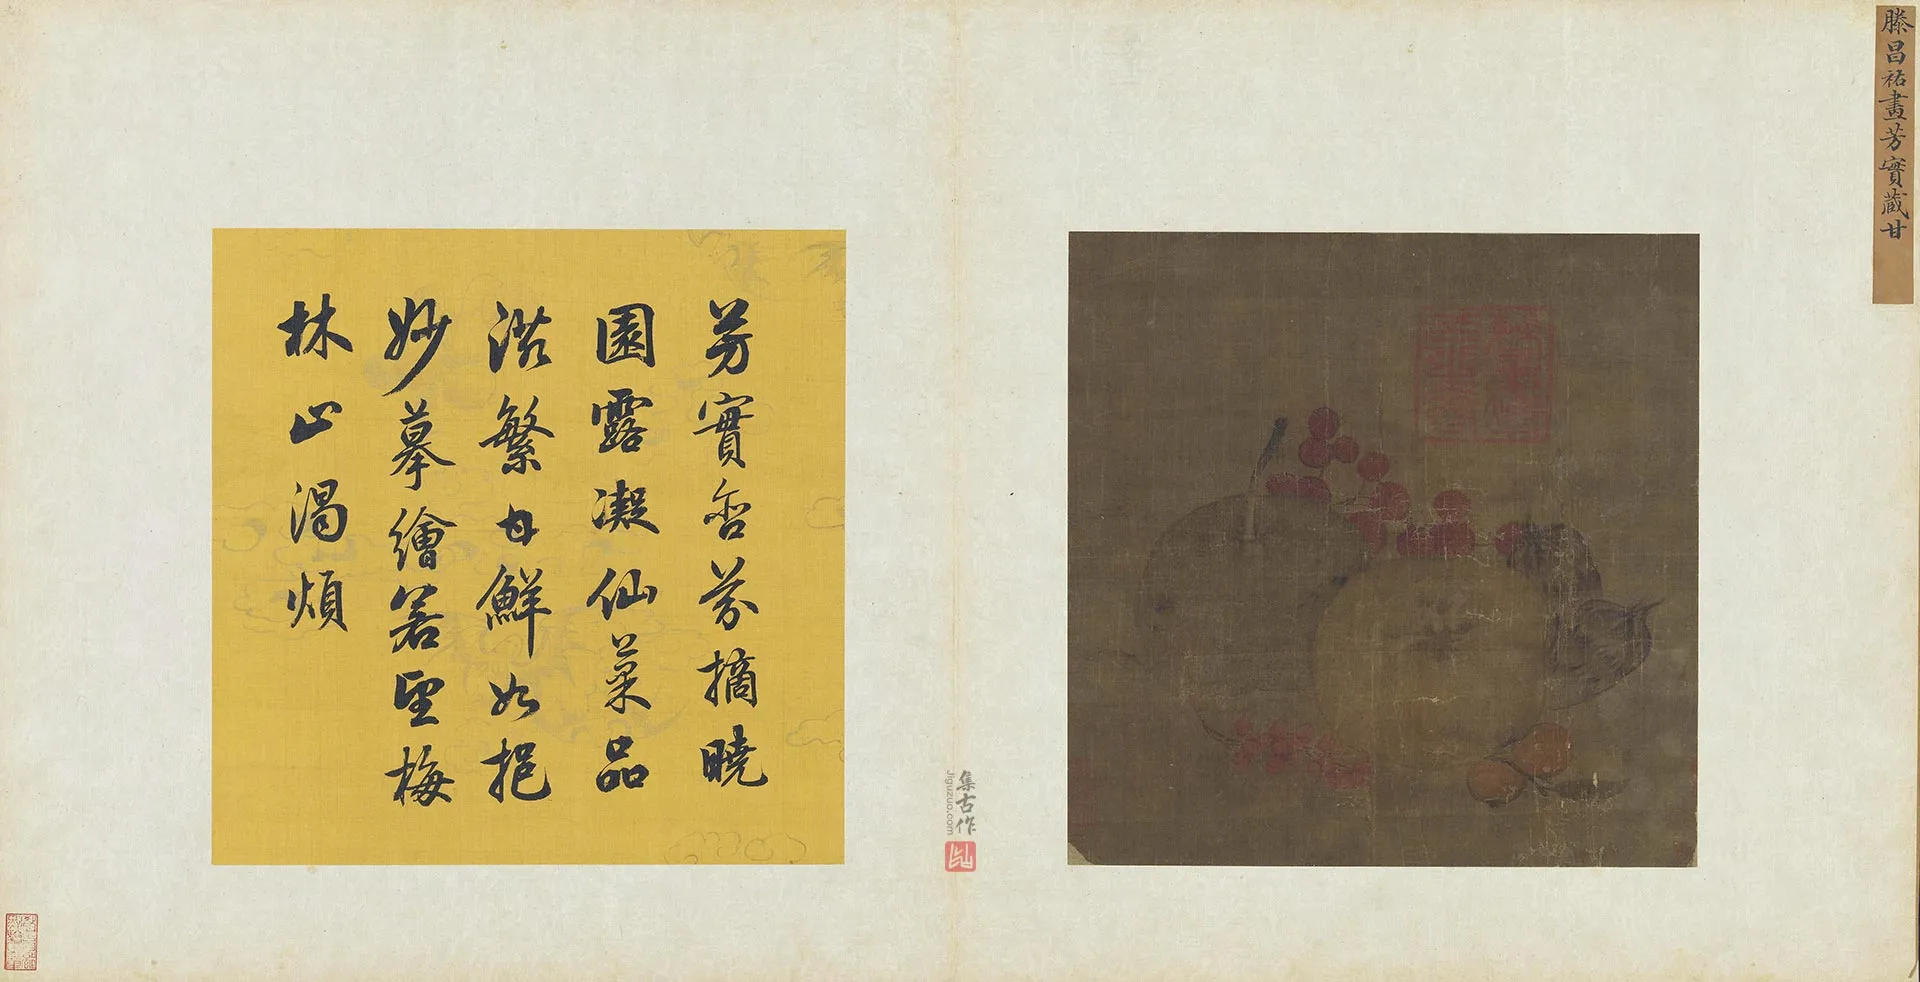 滕昌祐畫芳實蔵甘
芳實含芬摘曉
園露凝仙菓品
滋繁甘鮮如挹
妙摹繪若望梅
林止渴煩
集古作
Jiguzuo.com